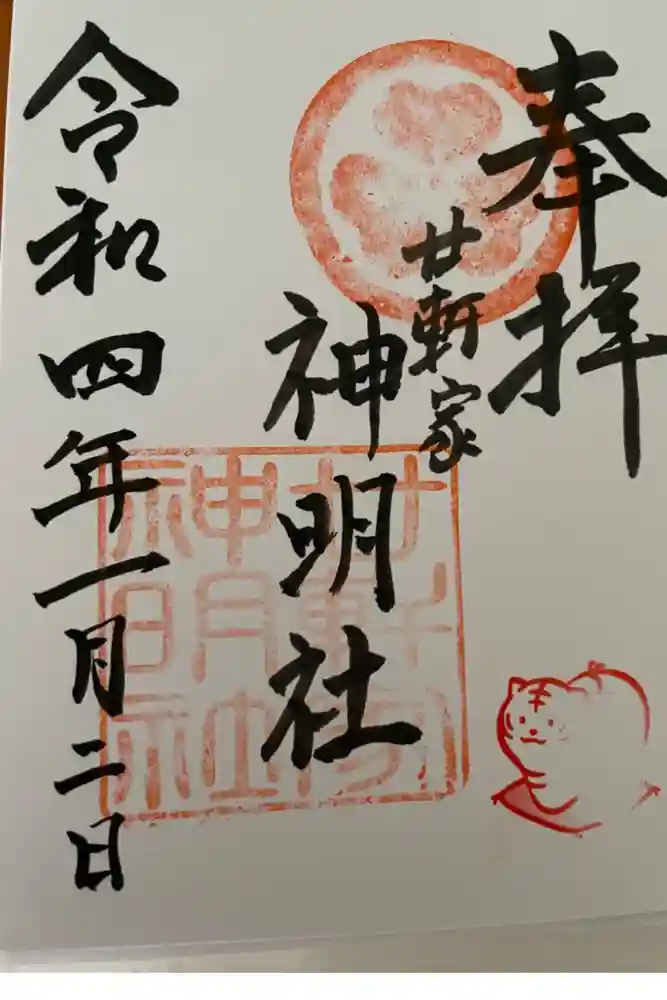 奉拝
廿軒家
神明社
令和四年一月二日
廿軒家
神明社
神日社